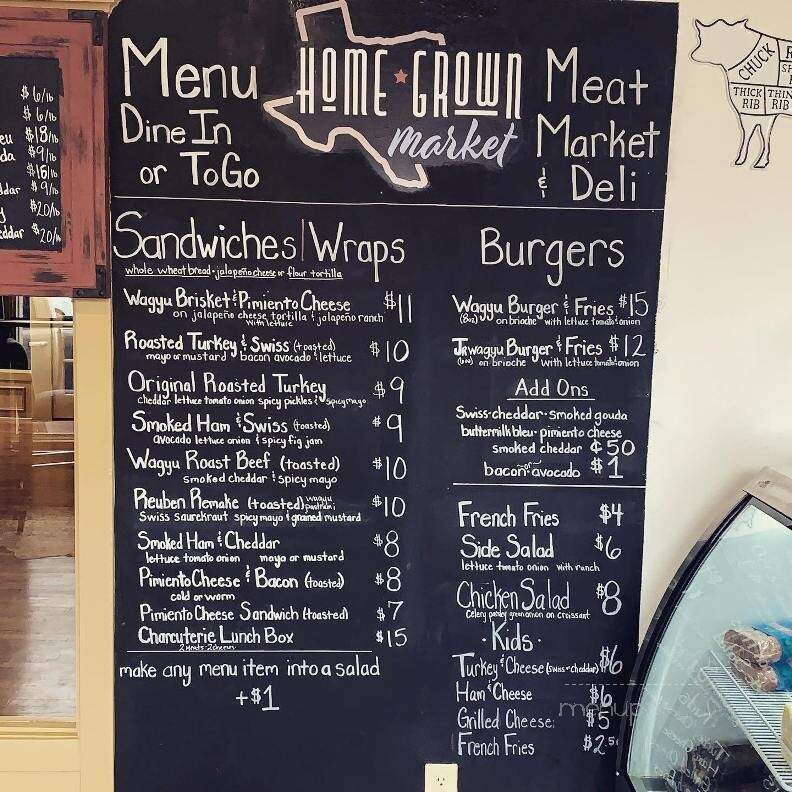 Menu
Dine In
or ToGo
HOME GROWN
market
Meat
Market
& Deli
$6/lb
$6/lb
$18/lb
$9/lb
$16/lb
$9/lb
$20/lb
$20/lb
Sandwiches/Wraps
whole wheat bread - jalapeño cheese or flour tortilla
Wagyu Brisket & Pimiento Cheese $11
on jalapeño cheese tortilla & jalapeño ranch
with lettuce
Roasted Turkey & Swiss (toasted) $10
mayo or mustard bacon avocado & lettuce
Original Roasted Turkey $9
cheddar lettuce tomato onion spicy pickles & spicy mayo
Smoked Ham & Swiss (toasted) $9
avocado lettuce onion & spicy fig jam
Wagyu Roast Beef (toasted) $10
smoked cheddar & spicy mayo
Reuben Remake (toasted) wagyu pastrami $10
Swiss saurekraut spicy mayo & grained mustard
Smoked Ham & Cheddar $8
lettuce tomato onion mayo or mustard
Pimiento Cheese & Bacon (toasted) $8
cold or worm
Pimiento Cheese Sandwich (toasted) $7
Charcuterie Lunch Box $15
2 Meats - 2 cheeses
make any menu item into a salad
+$1
Burgers
Wagyu Burger & Fries $15
(8oz) on brioche with lettuce tomato & onion
Jr wagyu Burger & Fries $12
on brioche with lettuce tomato & onion
Add Ons
Swiss - cheddar - smoked gouda
buttermilk bleu - pimiento cheese
smoked cheddar ¢50
bacon or avocado $1
French Fries $4
Side Salad $6
lettuce tomato onion with ranch
Chicken Salad $8
Celery parsley green onion on croissant
· Kids ·
Turkey & Cheese (swiss or cheddar) $6
Ham & Cheese $6
Grilled Cheese: $5
French Fries $2.50
CHUCK
THICK RIB
THIN RIB